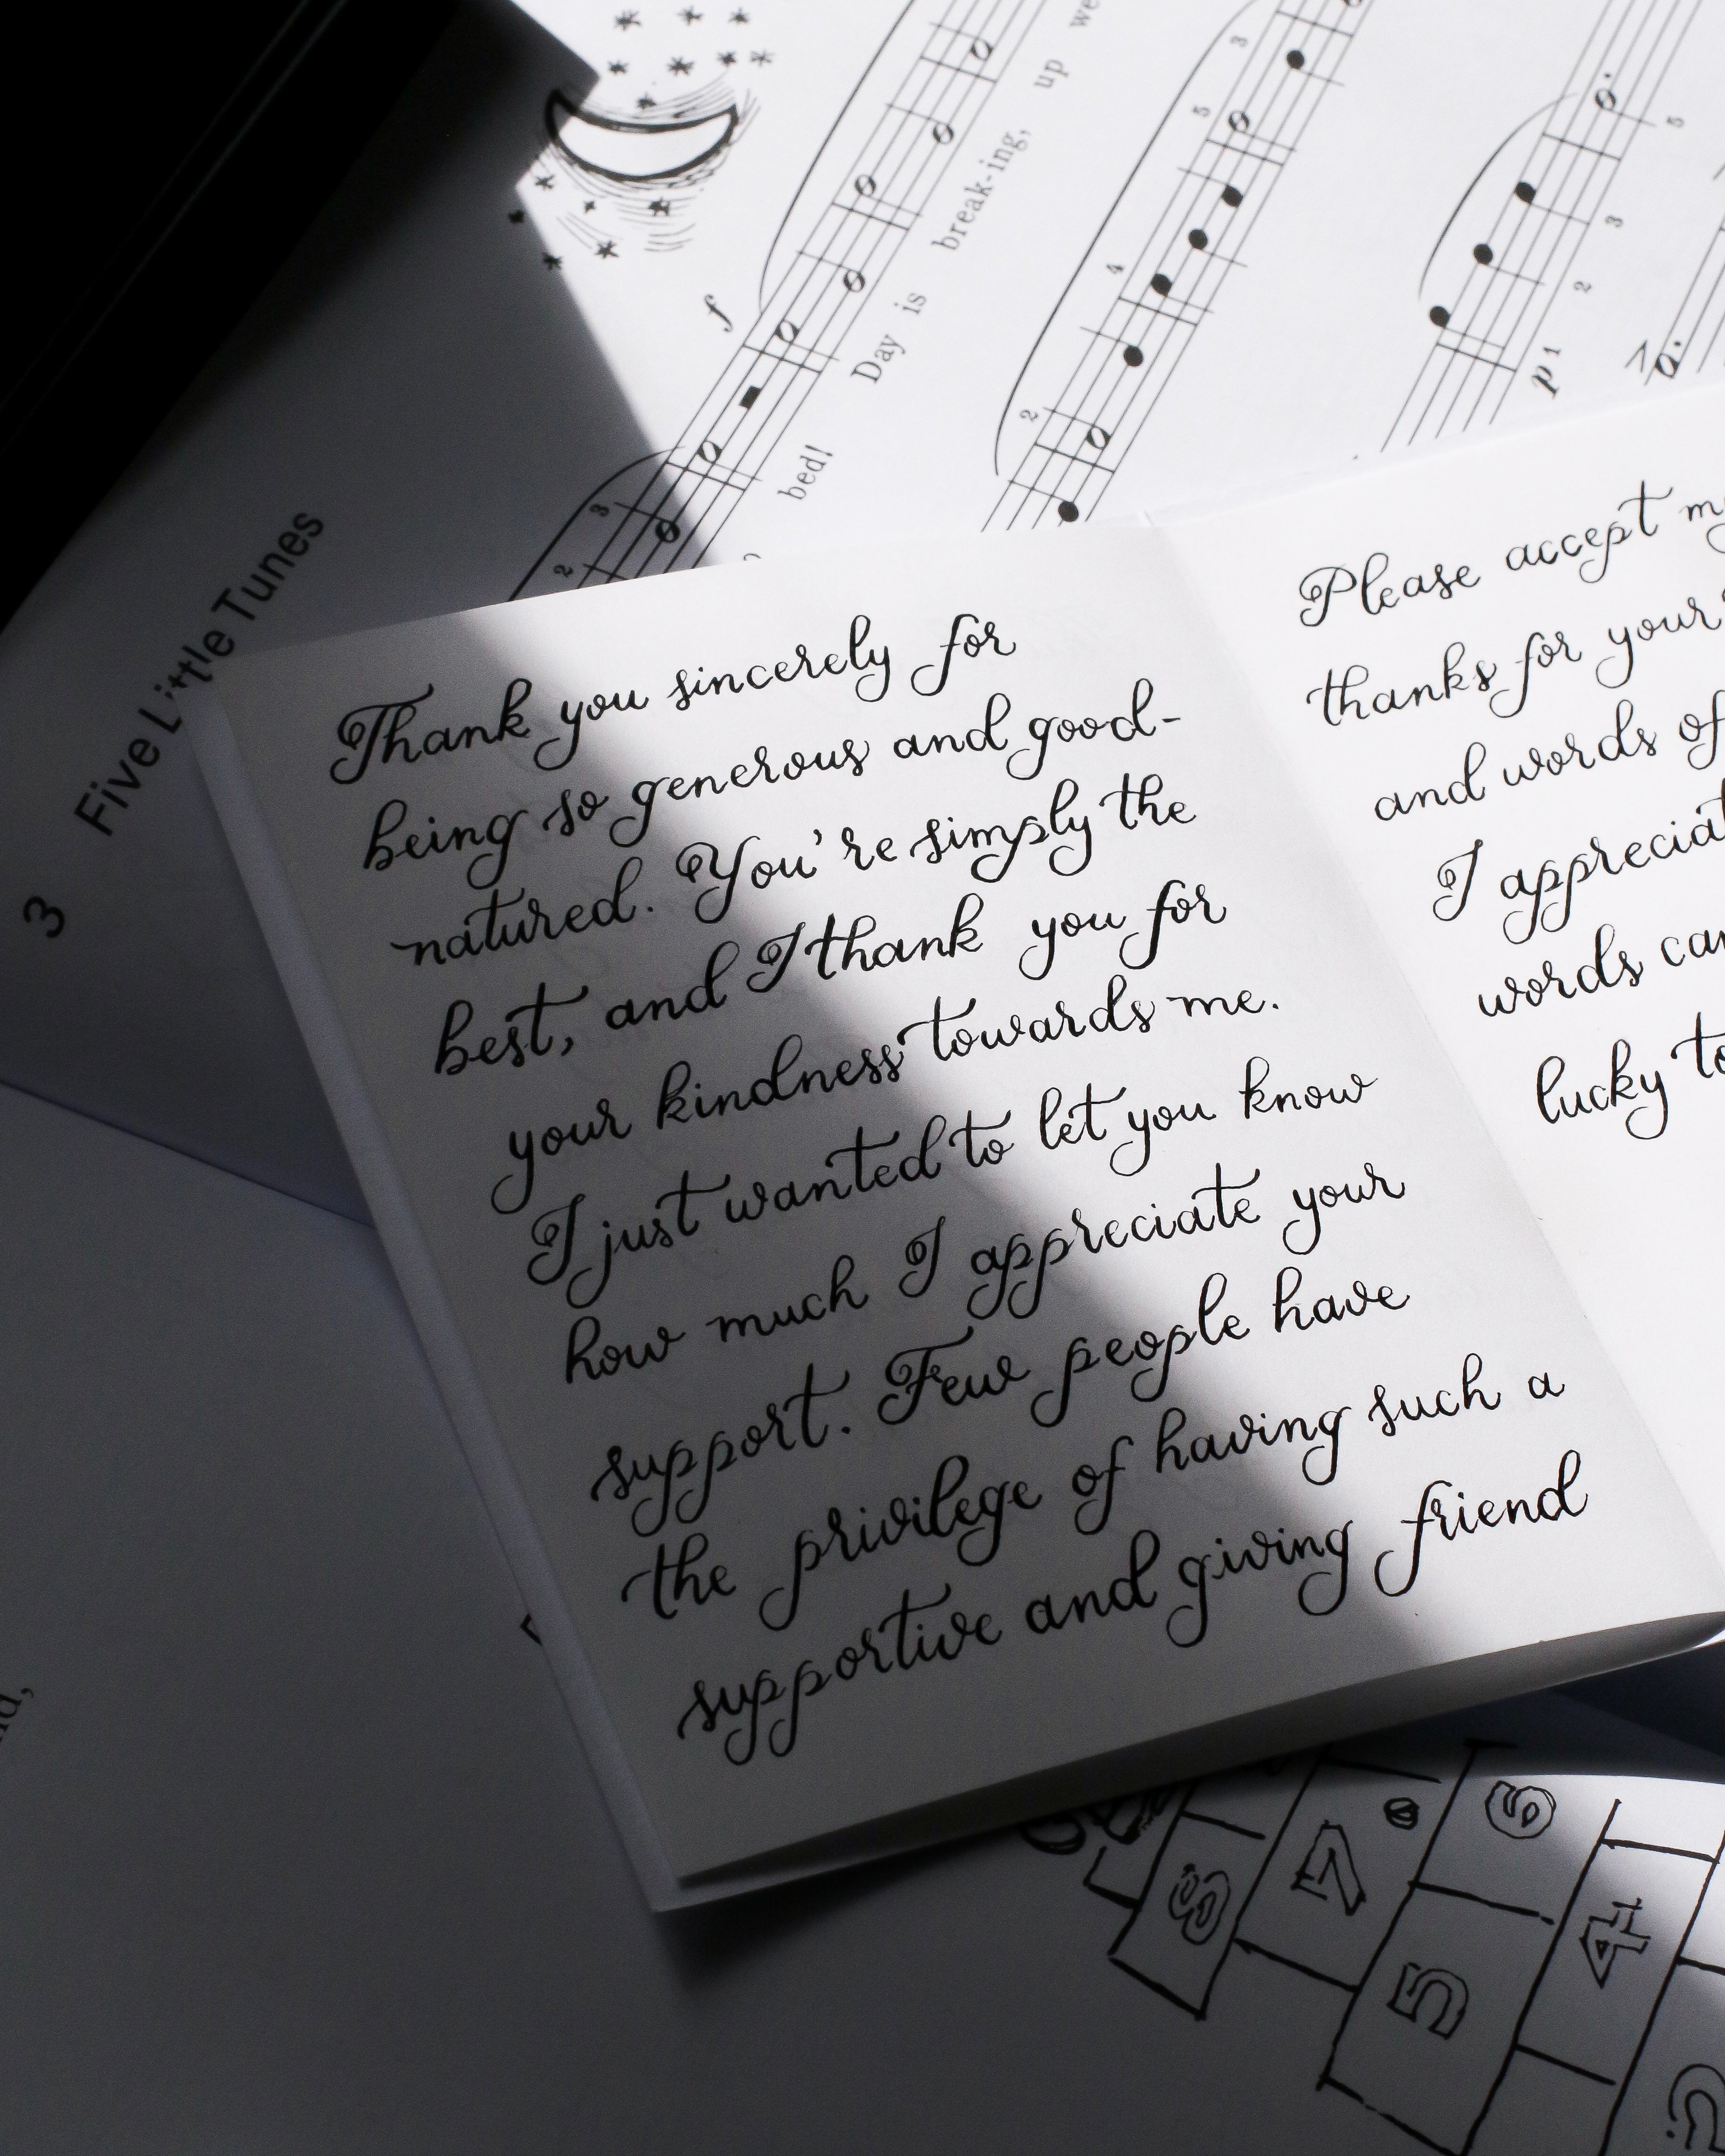 Five Little Tunes
3
f
bed! Day is break-ing, up we
2 3
2 4 5 3
p 1 2 3 5
Thank you sincerely for
being so generous and good-
natured. You're simply the
best, and I thank you for
your kindness towards me.
I just wanted to let you know
how much I appreciate your
support. Few people have
the privilege of having such a
supportive and giving friend
Please accept
thanks for your
and words of
I
words
lucky
8 7 6
5 4